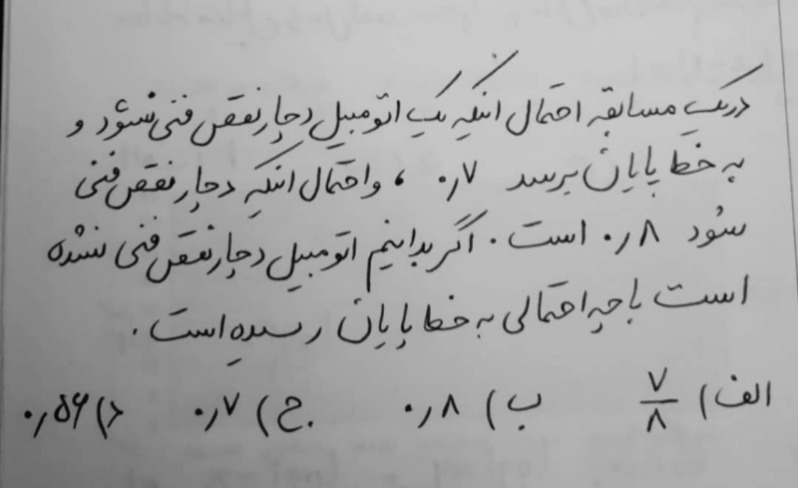 در یک مسابقه احتمال اینکه یک اتومبیل دچار نقص فنی نشود و
به خط پایان برسد ۰٫۷ ، و احتمال اینکه دچار نقص فنی
شود ۰٫۸ است . اگر بدانیم اتومبیل دچار نقص فنی نشده
است با چه احتمالی به خط پایان رسیده است .
الف) ۷/۸ ب) ۰٫۸ ج) ۰٫۷ د) ۰٫۵۶